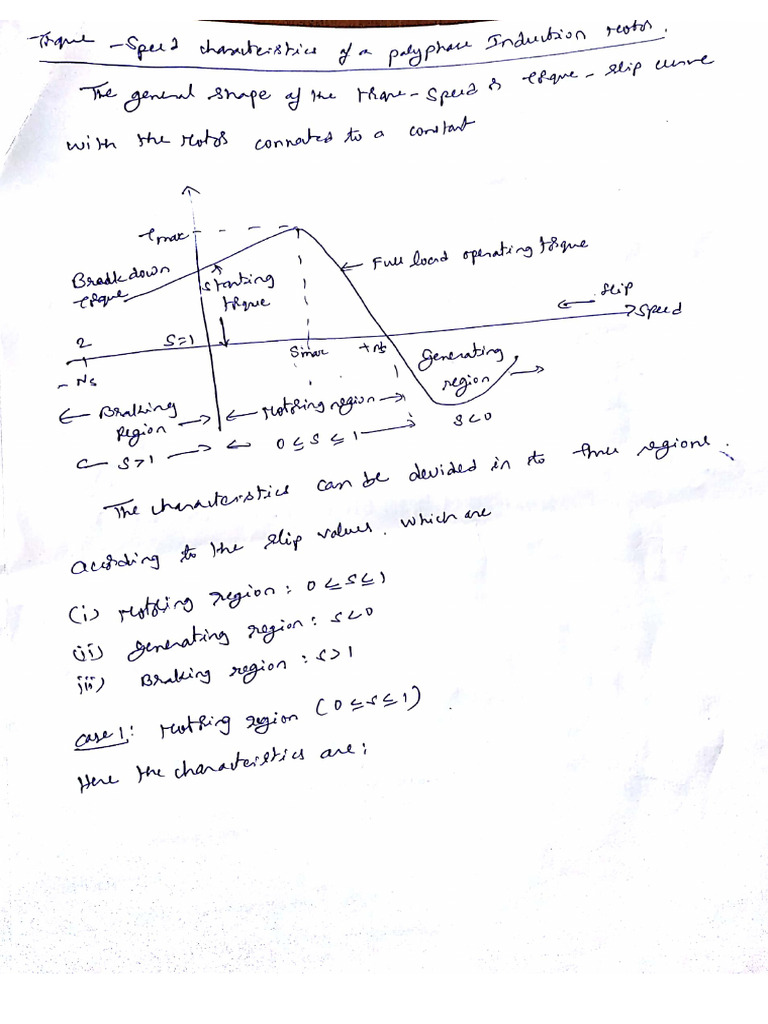 Torque - Speed characteristics of a polyphase Induction motor.
The general shape of the torque - speed or torque - slip curve
with the motor connated to a constant
τmax
Breakdown
torque
starting
torque
← Full load operating torque
← slip
→ Speed
2
S=1
Smax
+Ns
-Ns
Generating
region →
S<0
← Braking
Region →
← Motoring region →
← S>1 →
← 0 ≤ S ≤ 1 →
The characteristics can be devided in to three regions.
Acording to the slip values. which are
(i) Motoring region : 0 ≤ s ≤ 1
(ii) Generating region : s<0
(iii) Braking region : s>1
Case 1: Motoring region (0 ≤ s ≤ 1)
Here the characteristics are: